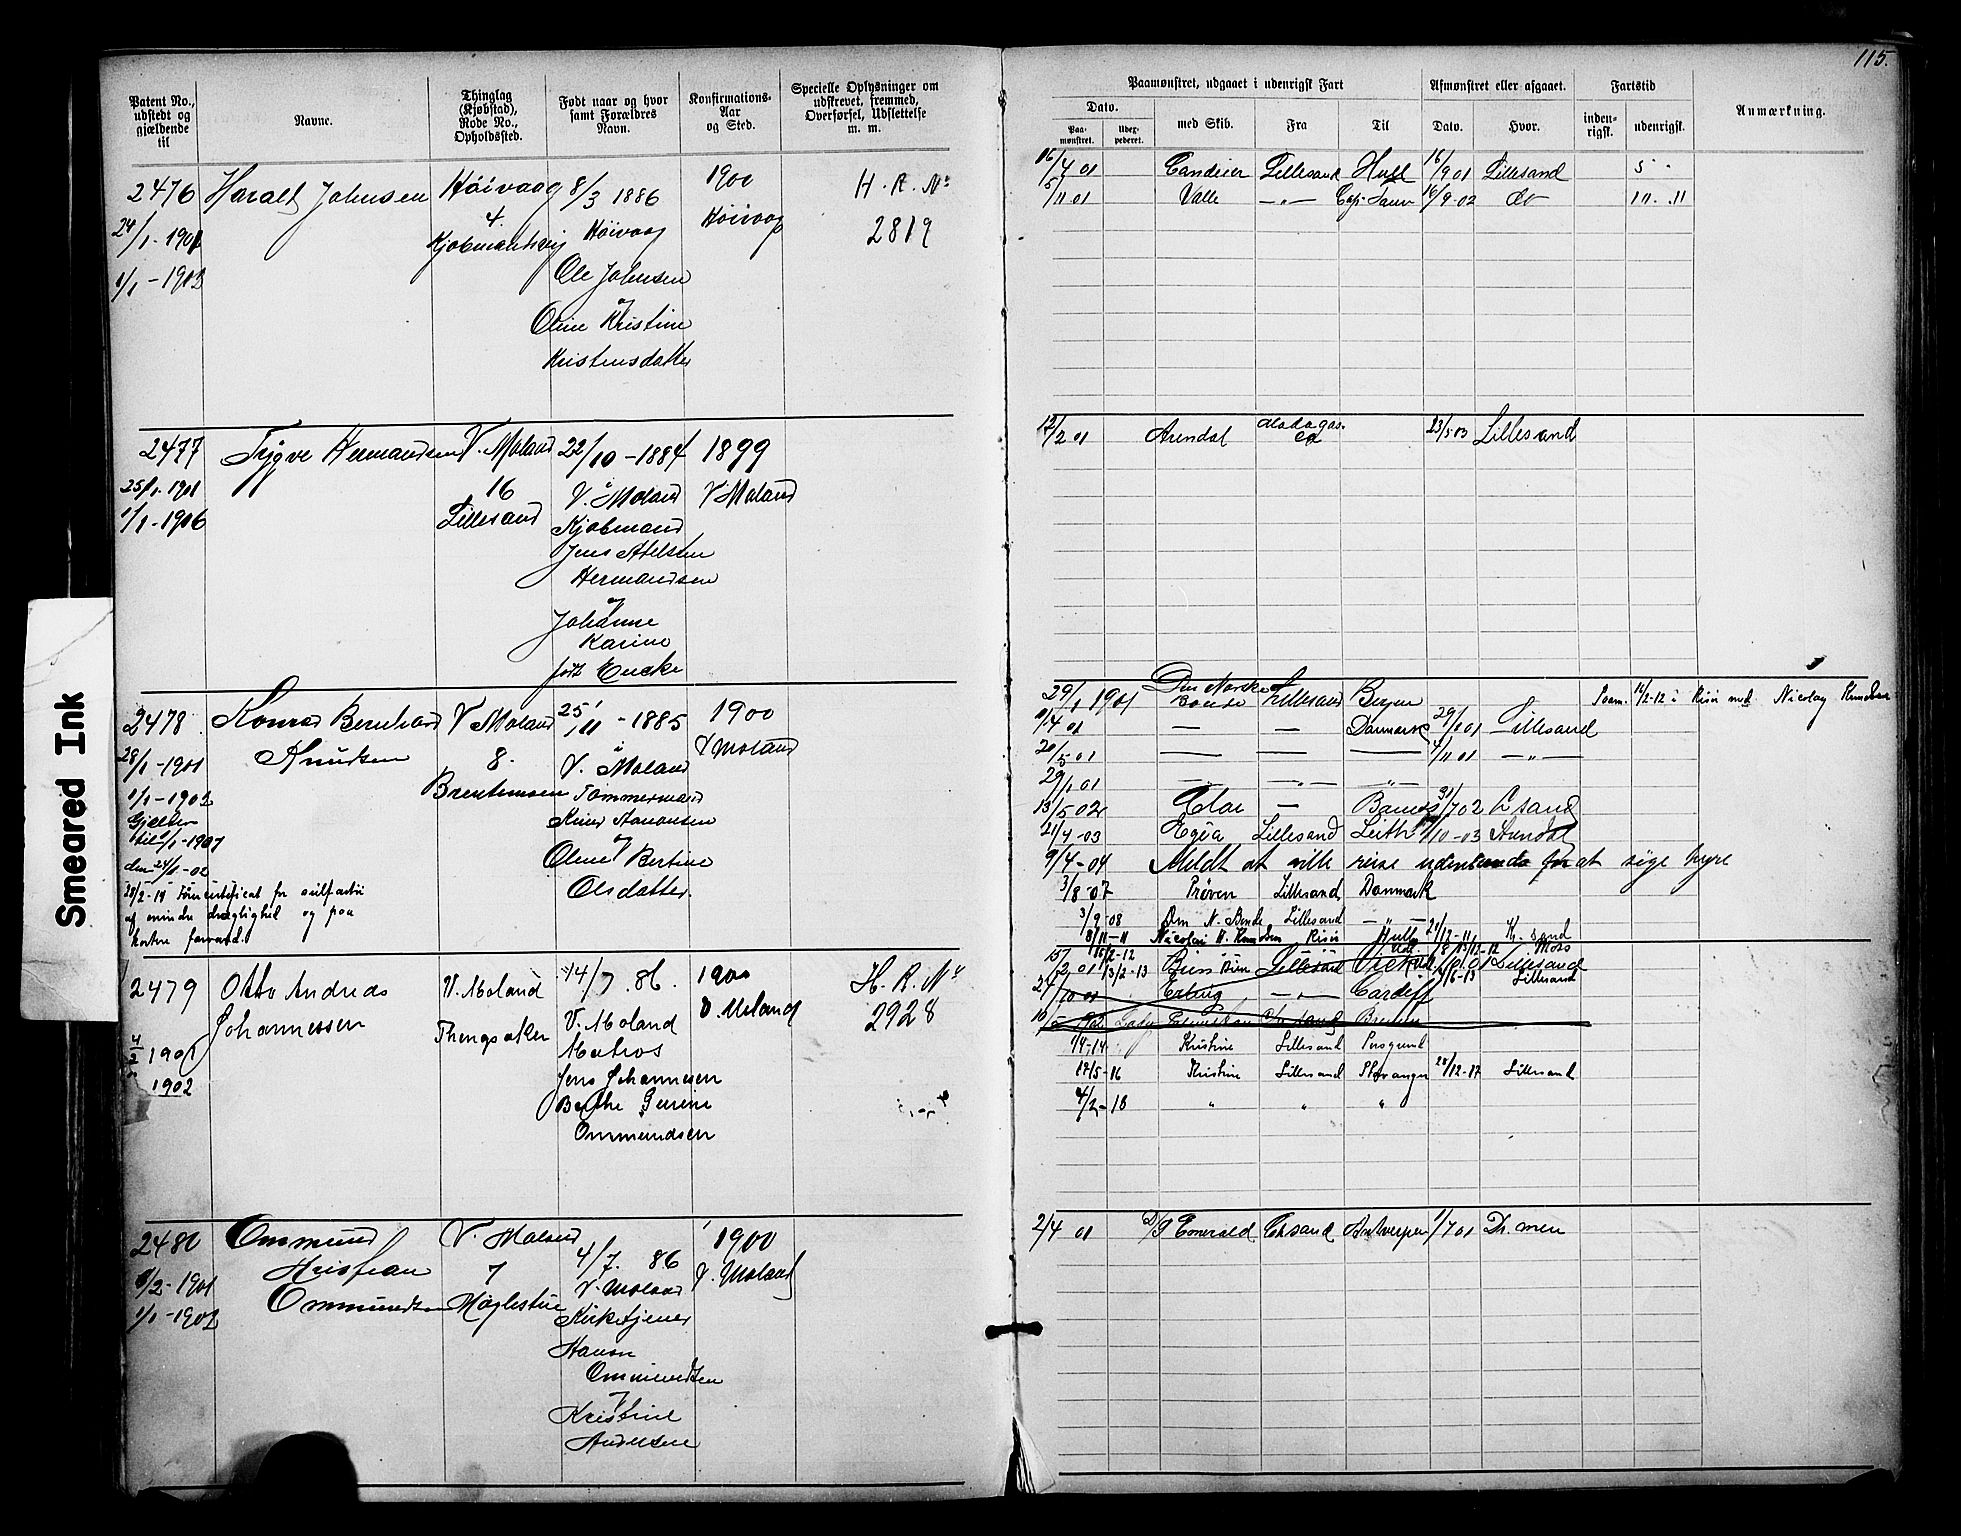 115.
Patent No., udstedt og gjældende til
Navne.
Thinglag (Kjøbstad), Rode No., Opholdssted.
Født naar og hvor samt Forældres Navn.
Konfirmations-Aar og Sted.
Specielle Oplysninger om udskrevet, fremmed, Overførsel, Udslettelse m. m.
Paamønstret, udgaaet i udenrigsk Fart
Dato.
Paa-mønstret.
Udex-pederet.
med Skib.
Fra
Til
Afmønstret eller afgaaet.
Dato.
Hvor.
Fartstid
inden-rigsk.
udenrigsk.
Anmærkning.
2476 Harald Johnsen Høivaag 8/3 1886 1900 H. R. No
24/1-1901 4. Høivaag Høivaag 2819
1/1-1903 Kjøbmandsvig
Ole Johnsen
og
Oline Kristine
Kristensdatter
16/4 01 Candeur Lillesand Hull 16/9 01 Lillesand 5 "
5/11 01 Valle -"- 16/9 02 do
2477 Trygve Hermandsen V. Moland 22/10-1884 1899
25/1-1901 16 V. Moland V Moland
1/1-1906 Lillesand Kjøbmand
Jens
Hermandsen
og
Johanne
Karine
født
12/2 01 Arendal 23/5 03 Lillesand
2478 Konrad Bernhard Knudsen V Moland 25/11-1885 1900
28/1-1901 8. V. Moland V Moland
1/1-1902 Tømmermand
Gjælder
til 1/1-1907
den 24/1-02
og
Oline Bertine
Olsdatter
af mindre dragtighed og paa
kortere farvand.
29/1 1901 Den Norske Bonde Lillesand Bergen
1/4 01 — — Danmark 29/ 01 Lillesand
20/5 01 — — — 1/11 01 -"-
29/1 01 — -"- -"-
13/5 02 — 31/7 02
21/4-03 Egia Lillesand Leith /10-03 Arendal
9/4-04 Meldt at ville reise udenlands for at søge hyre
3/8-07 Prøven Lillesand Danmark
3/9-08 Den N. Bonde Lillesand -"-
8/11-11 Nicolai H. Knudsen Risør Hull
Paam. 14/2-12 i Risør med Nicolay Knudsen
2479 Otto Andreas Johannessen V. Moland 14/7. 86. 1900 H. R. No
4/2 1901 V. Moland V. Moland 2928
1902 Matros
Jens Johannesen
Berthe Gurine
Ommundsen
13/2-13 Lillesand
Erling -"- Cardiff
/4-14 Kristine Lillesand Porsgrund
12/5-16 Kristine Lillesand Stavanger 28/12-17 Lillesand
4/2-18 " " "
2480 Ommund Kristian Ommundsen V. Moland 4/7. 86 1900
/2-1901 7 V. Moland V. Moland
1/1-1902 Møglestue Kirketjener
Ommundsen
Kristine
Andersen
2/4 01 D/S Emerald Chsand Antwerpen 1/7 01 Dr. men
Smeared Ink